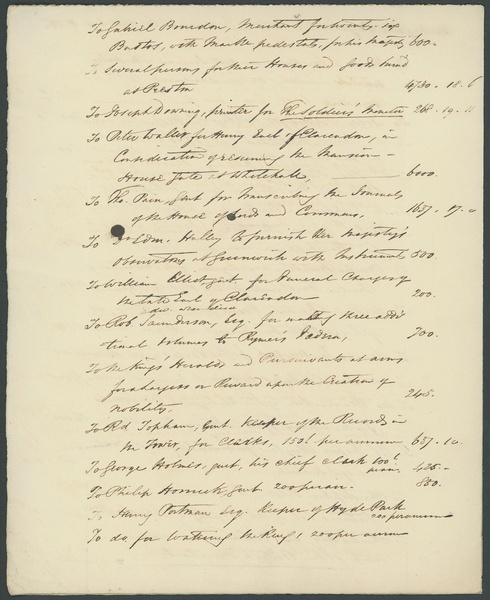 To Gabriel Bourdon, Merchant for twenty-six
Bustos, with Marble pedestals, for his Majesty 600.
To Several persons for their Houses and goods burnd
at Preston 4730 - 18 - 6
To Joseph Downing, printer for The Soldier's Monitor 268 - 19 - 11
To Peter Walter for Henry Earl of Clarendon, in
Consideration of resuming the Mansion-
House gate at Whitehall, 6000.
To Tho. Pain, Gent for Transcribing the Journals
of the House of Lords and Commons, 1657 - 17 - 0
To Edm. Halley to furnish Her Majesty's
Observatory at Greenwich with Instruments 500.
To William Elliot, gent. for Funeral Charges of
the late Earl of Clarendon 200.
To Rob. Saunderson, Esq. for making three addi
tional volumes to Rymer's Fœdera, 700.
To the King's Heralds and Pursuivants at arms
for a largess or Reward upon the Creation of
Nobility. 245.
To Rd Topham, Gent. Keeper of the Records in
the Tower, for Clerks, 150l. per annum 637 - 10.
To George Holmes, gent, his chief clerk 100l.
425 -
To Philip Horneck Gent 200 per an. - 850.
To Henry Portman Esq. Keeper of Hyde Park
200 per annum
To do for Watering the Ring, 200 per annum